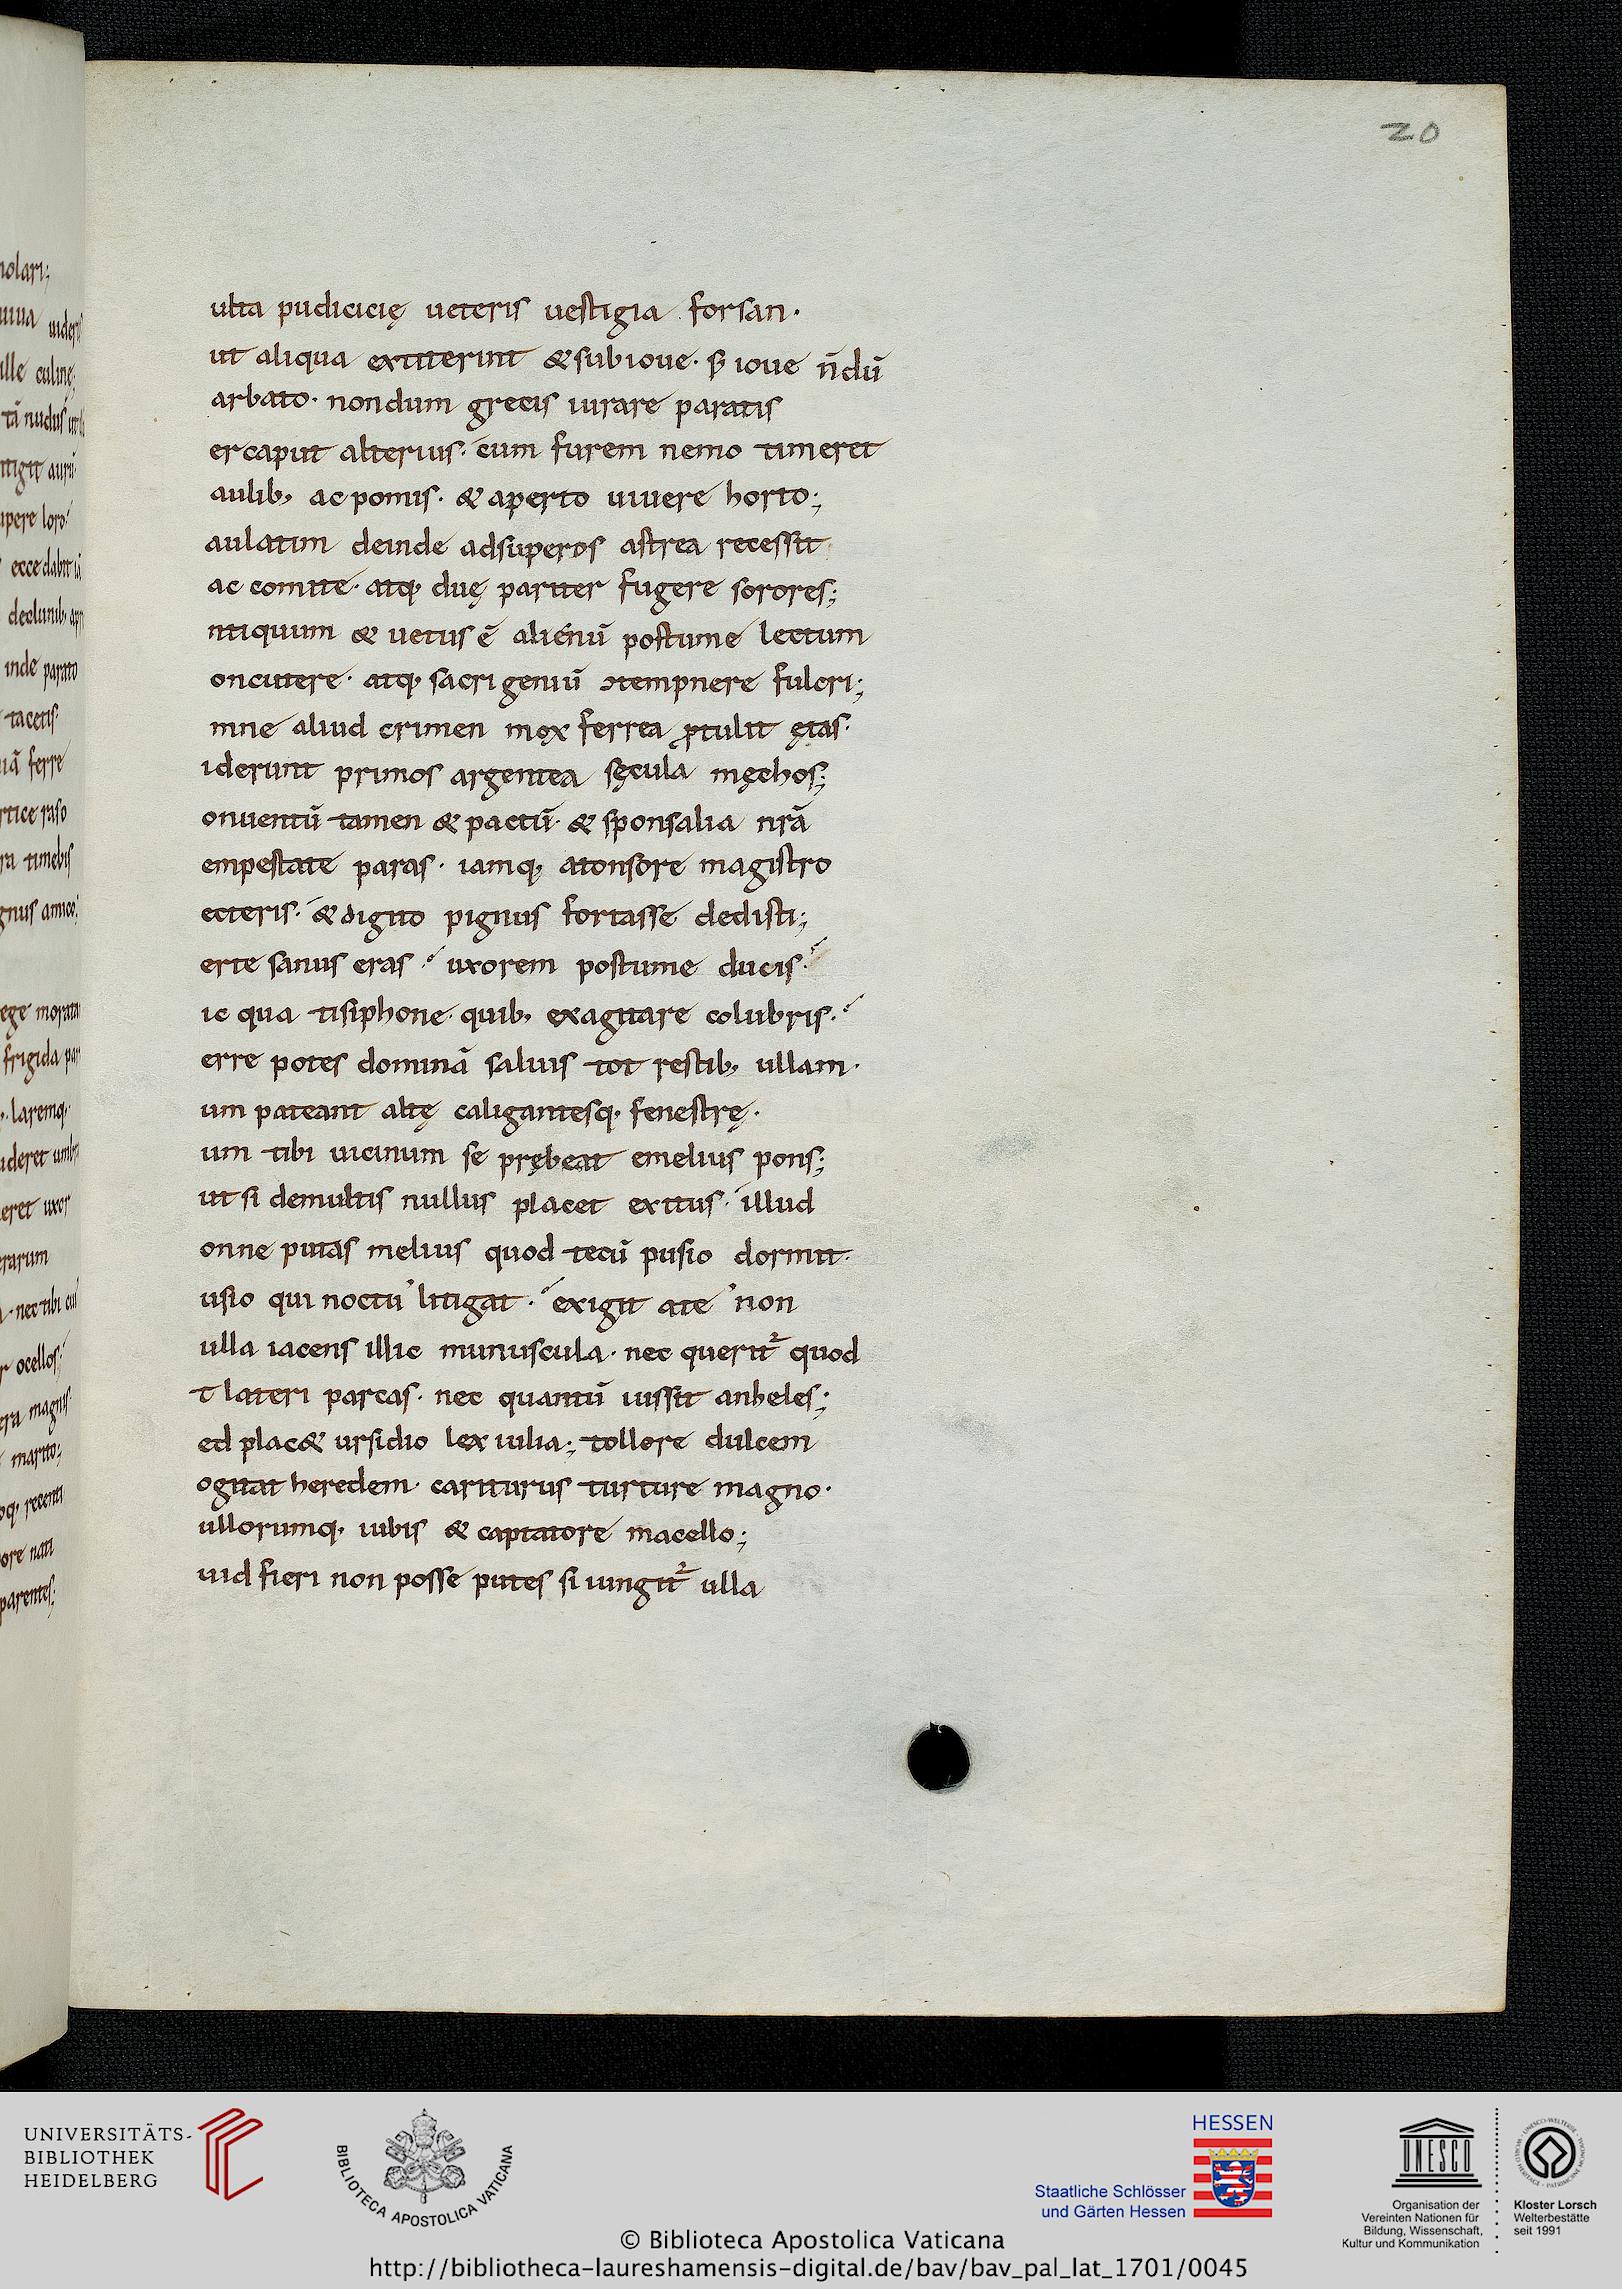 20
ulta pudicicię ueteris uestigia forsan·
ut aliqua extiterunt &sub ioue· s; ioue n̄dū
arbato· nondum grecis iurare paratis
er caput alterius· cum furem nemo timeret
aulib; ac pomis· & aperto uiuere horto;
aulatim deinde adsuperos astrea recessit
ac comite· atq; duę pariter fugere sorores;
ntiquum & uetus ē alienū postume lectum
oncutere· atq; sacri geniū ɔtempnere fulcri;
mne aliud crimen mox ferrea ꝓtulit ętas·
iderunt primos argentea sęcula męchos;
onuentū tamen & pactū· & sponsalia nrā
empestate paras· iamq; atonsore magistro
ecteris· & digito pignus fortasse dedisti;
erte sanus eras·́ uxorem postume ducis·́
ic qua tisiphone· quib; exagitare colubris·́
erre potes dominā saluis tot restib; ullam·
um pateant altę caligantesq; fenestrę·
um tibi uicinum se prębeat emelius pons;
ut si demultis nullus placet exitus· illud
onne putas melius quod tecū pusio dormit·
usio qui noctu litigat·́ exigit ate non
ulla iacens illic munuscula· nec querit᷑ quod
t lateri parcas· nec quantū iussit anheles;
ed plac& ursidio lex iulia; tollere dulcem
ogitat heredem· cariturus turture magno·
ullorumq; iubis & captatore macello;
uid fieri non posse putes si iungit᷑ ulla
UNIVERSITÄTS-
BIBLIOTHEK
HEIDELBERG
BIBLIOTECA APOSTOLICA VATICANA
HESSEN
Staatliche Schlösser
und Gärten Hessen
UNESCO
Organisation der
Vereinten Nationen für
Bildung, Wissenschaft,
Kultur und Kommunikation
Kloster Lorsch
Welterbestätte
seit 1991
© Biblioteca Apostolica Vaticana
http://bibliotheca-laureshamensis-digital.de/bav/bav_pal_lat_1701/0045